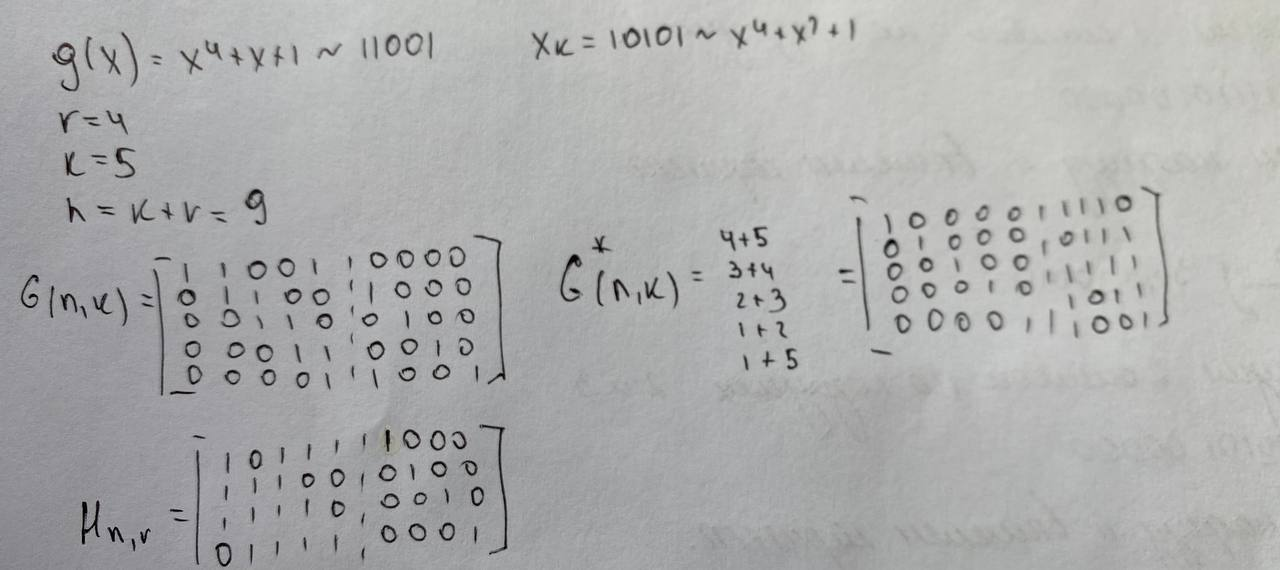 g(x) = x⁴+x+1 ~ 11001
Xк = 10101 ~ x⁴+x²+1
r=4
к=5
n = к+r = 9
G(n,к) =
1 1 0 0 1 | 0 0 0 0
0 1 1 0 0 | 1 0 0 0
0 0 1 1 0 | 0 1 0 0
0 0 0 1 1 | 0 0 1 0
0 0 0 0 1 | 1 0 0 1
G*(n,к) =
4+5
3+4
2+3
1+2
1+5
=
1 0 0 0 0 | 1 1 1 0
0 1 0 0 0 | 0 1 1 1
0 0 1 0 0 | 1 1 1 1
0 0 0 1 0 | 1 0 1 1
0 0 0 0 1 | 1 0 0 1
Hn,r =
1 0 1 1 1 | 1 0 0 0
1 1 1 0 0 | 0 1 0 0
1 1 1 1 0 | 0 0 1 0
0 1 1 1 1 | 0 0 0 1